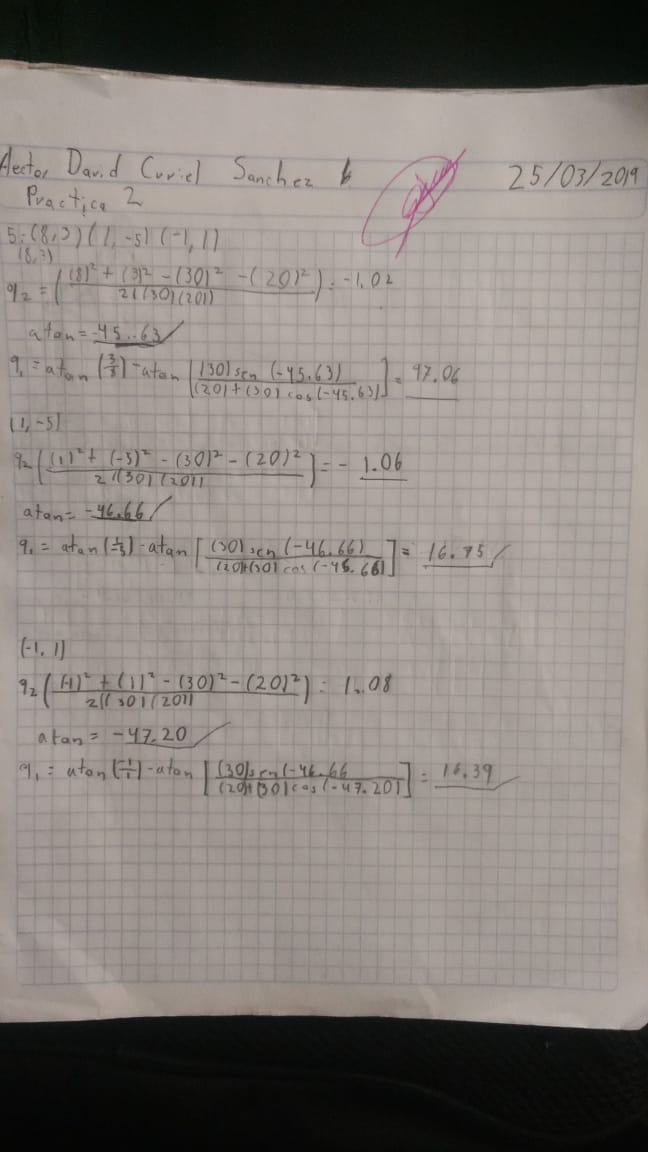 Hector David Curiel Sanchez 25/03/2019
Practica 2
5-(8,3) (1, -5) (-1, 1)
(8,3)
q2 = ( (8)² + (3)² - (30)² - (20)² / 2((30)(20)) ) = -1.02
atan = -45..63
q1 = atan (3/8) - atan [ (30) sen (-45.63) / (20)+(30) cos(-45.63) ] = 97.06
(1, -5)
q2 ( (1)² + (-5)² - (30)² - (20)² / 2((30)(20)) ) = - 1.06
atan = -46.66
q1 = atan (1/-5) - atan [ (30) sen (-46.66) / (20)+(30) cos (-46.66) ] = 16.75
(-1, 1)
q2 ( (-1)² + (1)² - (30)² - (20)² / 2((30)(20)) ) = 1.08
atan = -47.20
q1 = atan (-1/1) - atan [ (30) sen (-46.66 / (20)+(30) cos (-47.20) ] = 16.39